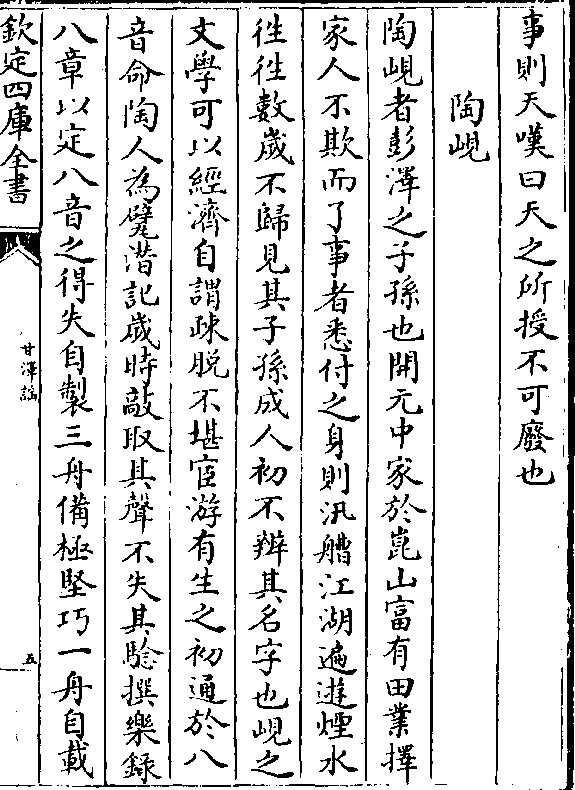 事則天嘆曰天之所授不可廢也
陶峴
陶峴者彭澤之子孫也開元中家於崑山富有田業擇
家人不欺而了事者悉付之身則汎艚江湖遍遊煙水
徃徃數歲不歸見其子孫成人初不辨其名字也峴之
文學可以經濟自謂疎脫不堪宦游有生之初通於八
音命陶人為甓潛記歲時敲取其聲不失其驗撰樂錄
八章以定八音之得失自製三舟備極堅巧一舟自載
欽定四庫全書
甘澤謡
五